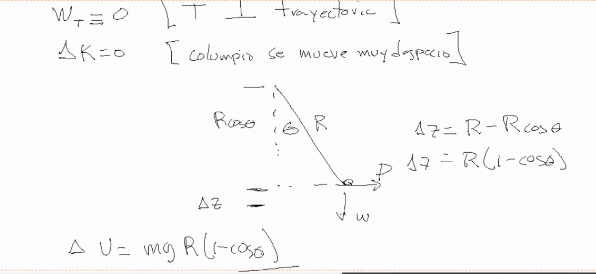 W_T ≡ 0 [T ⊥ trayectoria]
ΔK=0 [columpio se mueve muy despacio]
Rcosθ θ R
ΔZ = R - Rcosθ
ΔZ = R(1-cosθ)
P
ΔZ
w
ΔU = mgR(1-cosθ)